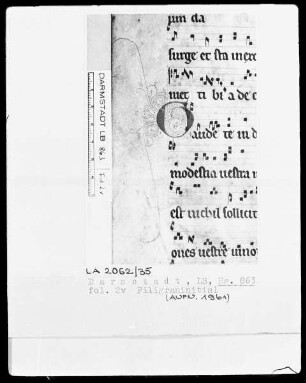 surge et sta in exce
niet ti bi a de e
Gaude te in d
modestia uestra n
est nichil sollicit
ones uestre inno
DARMSTADT LB 863 Fol 2v
LA 2062/35
Darmstadt, LB, Hs. 863
fol. 2v Filigraninitial
(AUFN. 1961)